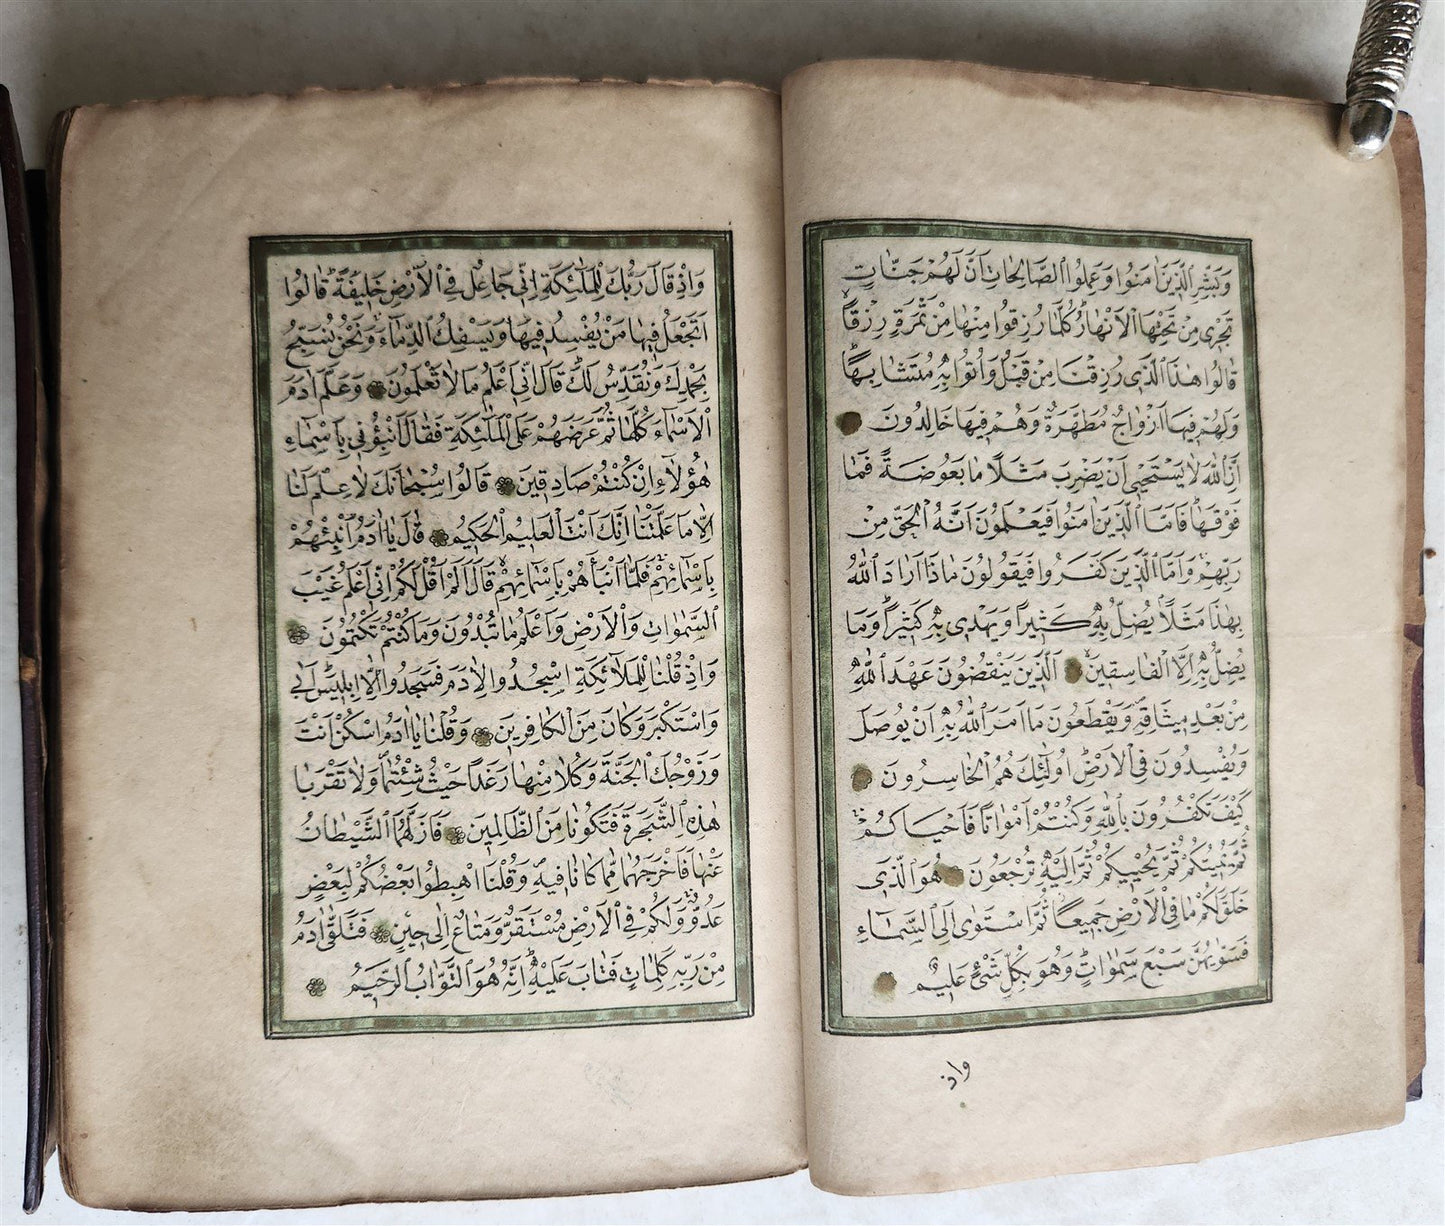 وَبَشِّرِ الَّذِينَ اٰمَنُوا وَعَمِلُوا الصَّالِحَاتِ اَنَّ لَهُمْ جَنَّاتٍ
تَجْرِى مِنْ تَحْتِهَا الْاَنْهَارُ كُلَّمَا رُزِقُوا مِنْهَا مِنْ ثَمَرَةٍ رِزْقًا
قَالُوا هٰذَا الَّذِى رُزِقْنَا مِنْ قَبْلُ وَاُتُوا بِهٖ مُتَشَابِهًا
وَلَهُمْ فِيهَا اَزْوَاجٌ مُطَهَّرَةٌ وَهُمْ فِيهَا خَالِدُونَ
اِنَّ اللّٰهَ لَا يَسْتَحْيِى اَنْ يَضْرِبَ مَثَلًا مَا بَعُوضَةً فَمَا
فَوْقَهَا فَاَمَّا الَّذِينَ اٰمَنُوا فَيَعْلَمُونَ اَنَّهُ الْحَقُّ مِنْ
رَبِّهِمْ وَاَمَّا الَّذِينَ كَفَرُوا فَيَقُولُونَ مَاذَا اَرَادَ اللّٰهُ
بِهٰذَا مَثَلًا يُضِلُّ بِهٖ كَثِيرًا وَيَهْدِى بِهٖ كَثِيرًا وَمَا
يُضِلُّ بِهٖ اِلَّا الْفَاسِقِينَ اَلَّذِينَ يَنْقُضُونَ عَهْدَ اللّٰهِ
مِنْ بَعْدِ مِيثَاقِهٖ وَيَقْطَعُونَ مَا اَمَرَ اللّٰهُ بِهٖ اَنْ يُوصَلَ
وَيُفْسِدُونَ فِى الْاَرْضِ اُولٰئِكَ هُمُ الْخَاسِرُونَ
كَيْفَ تَكْفُرُونَ بِاللّٰهِ وَكُنْتُمْ اَمْوَاتًا فَاَحْيَاكُمْ
ثُمَّ يُمِيتُكُمْ ثُمَّ يُحْيِيكُمْ ثُمَّ اِلَيْهِ تُرْجَعُونَ هُوَ الَّذِى
خَلَقَ لَكُمْ مَا فِى الْاَرْضِ جَمِيعًا ثُمَّ اسْتَوٰى اِلَى السَّمَاءِ
فَسَوّٰيهُنَّ سَبْعَ سَمٰوَاتٍ وَهُوَ بِكُلِّ شَىْءٍ عَلِيمٌ
واذ
وَاِذْ قَالَ رَبُّكَ لِلْمَلٰئِكَةِ اِنِّى جَاعِلٌ فِى الْاَرْضِ خَلِيفَةً قَالُوا
اَتَجْعَلُ فِيهَا مَنْ يُفْسِدُ فِيهَا وَيَسْفِكُ الدِّمَاءَ وَنَحْنُ نُسَبِّحُ
بِحَمْدِكَ وَنُقَدِّسُ لَكَ قَالَ اِنِّى اَعْلَمُ مَا لَا تَعْلَمُونَ وَعَلَّمَ اٰدَمَ
الْاَسْمَاءَ كُلَّهَا ثُمَّ عَرَضَهُمْ عَلَى الْمَلٰئِكَةِ فَقَالَ اَنْبِؤُنِى بِاَسْمَاءِ
هٰؤُلَاءِ اِنْ كُنْتُمْ صَادِقِينَ قَالُوا سُبْحَانَكَ لَا عِلْمَ لَنَا
اِلَّا مَا عَلَّمْتَنَا اِنَّكَ اَنْتَ الْعَلِيمُ الْحَكِيمُ قَالَ يَا اٰدَمُ اَنْبِئْهُمْ
بِاَسْمَائِهِمْ فَلَمَّا اَنْبَاَهُمْ بِاَسْمَائِهِمْ قَالَ اَلَمْ اَقُلْ لَكُمْ اِنِّى اَعْلَمُ غَيْبَ
السَّمٰوَاتِ وَالْاَرْضِ وَاَعْلَمُ مَا تُبْدُونَ وَمَا كُنْتُمْ تَكْتُمُونَ
وَاِذْ قُلْنَا لِلْمَلَائِكَةِ اسْجُدُوا لِاٰدَمَ فَسَجَدُوا اِلَّا اِبْلِيسَ اَبٰى
وَاسْتَكْبَرَ وَكَانَ مِنَ الْكَافِرِينَ وَقُلْنَا يَا اٰدَمُ اسْكُنْ اَنْتَ
وَزَوْجُكَ الْجَنَّةَ وَكُلَا مِنْهَا رَغَدًا حَيْثُ شِئْتُمَا وَلَا تَقْرَبَا
هٰذِهِ الشَّجَرَةَ فَتَكُونَا مِنَ الظَّالِمِينَ فَاَزَلَّهُمَا الشَّيْطَانُ
عَنْهَا فَاَخْرَجَهُمَا مِمَّا كَانَا فِيهِ وَقُلْنَا اهْبِطُوا بَعْضُكُمْ لِبَعْضٍ
عَدُوٌّ وَلَكُمْ فِى الْاَرْضِ مُسْتَقَرٌّ وَمَتَاعٌ اِلٰى حِينٍ فَتَلَقّٰى اٰدَمُ
مِنْ رَبِّهٖ كَلِمَاتٍ فَتَابَ عَلَيْهِ اِنَّهُ هُوَ التَّوَّابُ الرَّحِيمُ